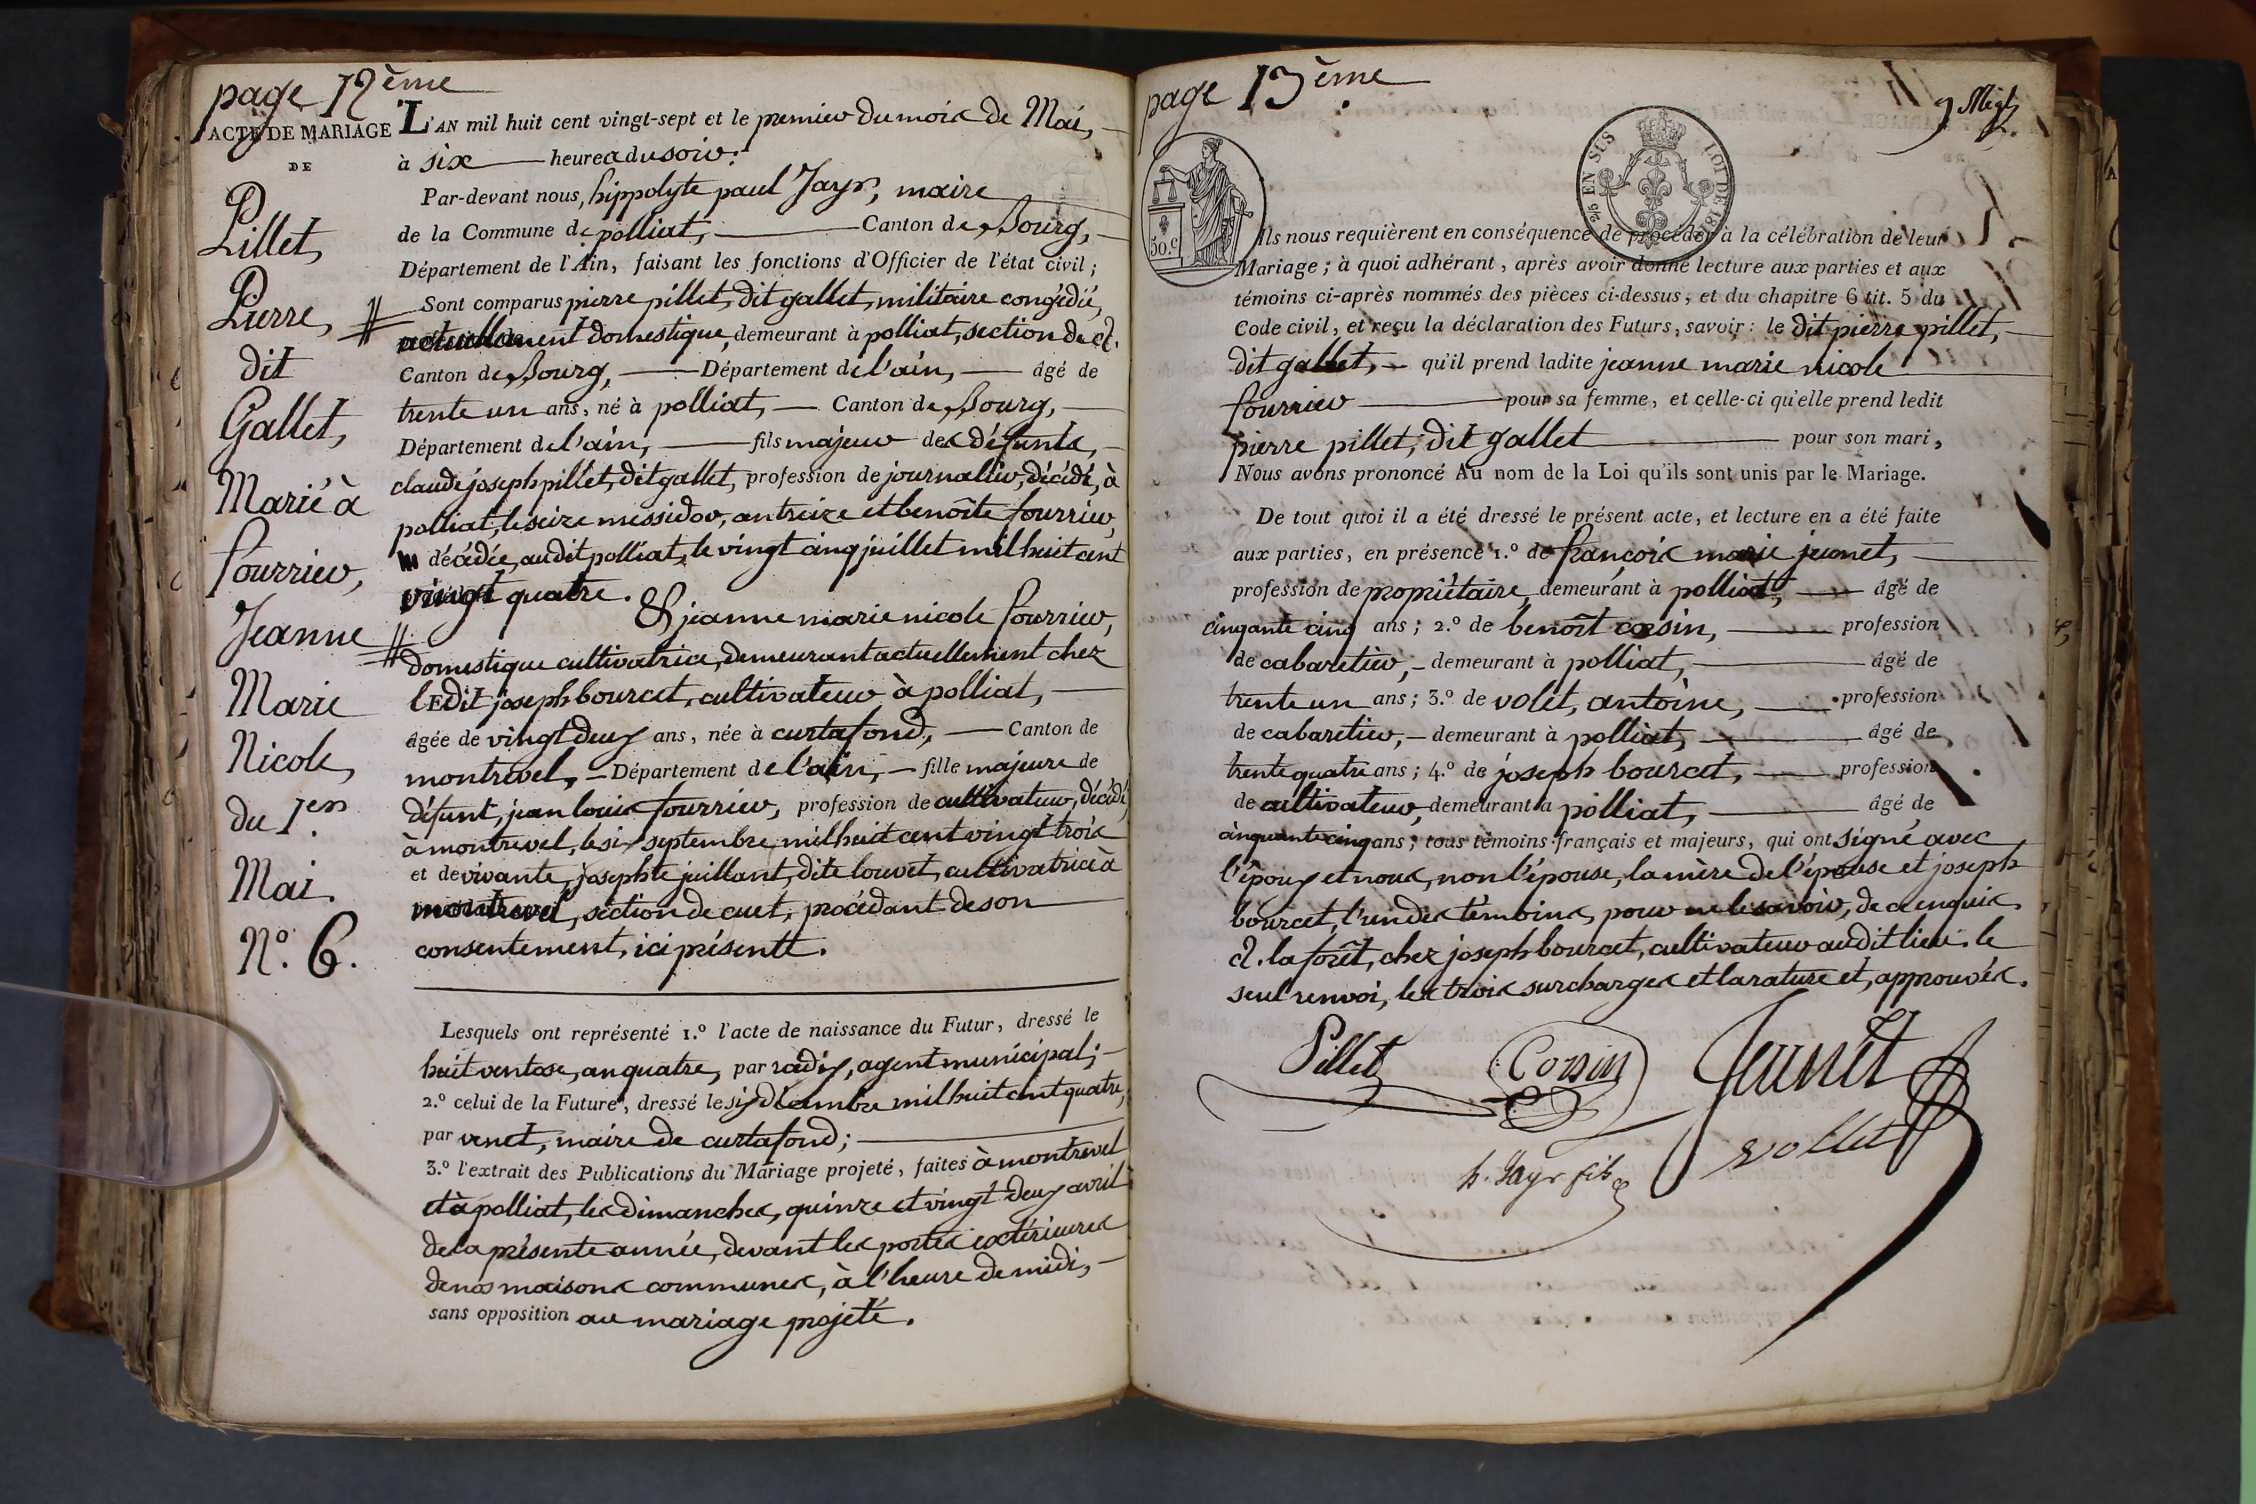 page 12ème
ACTE DE MARIAGE
DE
Pillet,
Pierre,
dit
Gallet,
Marié à
fourrier,
Jeanne
Marie
Nicole,
du 1er
Mai.
N.° 6.
L'AN mil huit cent vingt-sept et le premier du mois de Mai,
à six heures du soir.
Par-devant nous, hippolyte paul Jayr, maire
de la Commune de polliat, Canton de Bourg,
Département de l'Ain, faisant les fonctions d'Officier de l'état civil ;
Sont comparus pierre pillet, dit gallet, militaire congédié,
actuellement domestique, demeurant à polliat, section de
Canton de Bourg, Département de l'ain, âgé de
trente un ans, né à polliat, Canton de Bourg,
Département de l'ain, fils majeur des défunts,
claude joseph pillet, dit gallet, profession de journallier, décédé, à
polliat, le seize messidor, an treize et benoîte fourrier,
décédée, audit polliat, le vingt cinq juillet mil huit cent
vingt quatre.
Et jeanne marie nicole fourrier,
domestique cultivatrice, demeurant actuellement chez
ledit joseph bourcet, cultivateur à polliat,
âgée de vingt deux ans, née à curtafond, Canton de
montrevel, Département de l'ain, fille majeure de
défunt, jean louis fourrier, profession de cultivateur, décédé,
à montrevel, le six septembre, mil huit cent vingt trois
et de vivante, josephte juillant, dite louvet, cultivatrice à
montrevel, section de cuet, procédant de son
consentement, ici présente.
Lesquels ont représenté 1.° l'acte de naissance du Futur, dressé le
huit ventose, an quatre, par radix, agent municipal ;
2.° celui de la Future, dressé le six décembre mil huit cent quatre,
par venet, maire de curtafond ;
3.° l'extrait des Publications du Mariage projeté, faites à montrevel
et à polliat, les dimanches, quinze et vingt deux avril
de la présente année, devant les portes extérieures
de nos maisons communes, à l'heure de midi,
sans opposition au mariage projeté.
page 13ème
30.c
26 EN SUS
LOI DE 18
Ils nous requièrent en conséquence de procéder à la célébration de leur
Mariage ; à quoi adhérant, après avoir donné lecture aux parties et aux
témoins ci-après nommés des pièces ci-dessus, et du chapitre 6 tit. 5 du
Code civil, et reçu la déclaration des Futurs, savoir : le dit pierre pillet,
dit gallet, qu'il prend ladite jeanne marie nicole
fourrier pour sa femme, et celle-ci qu'elle prend ledit
pierre pillet, dit gallet pour son mari,
Nous avons prononcé Au nom de la Loi qu'ils sont unis par le Mariage.
De tout quoi il a été dressé le présent acte, et lecture en a été faite
aux parties, en présence 1.° de françois marie jeunet,
profession de propriétaire, demeurant à polliat, âgé de
cinqante cinq ans ; 2.° de benoît corsin, profession
de cabaretier, demeurant à polliat, âgé de
trente un ans ; 3.° de volet, antoine, profession
de cabaretier, demeurant à polliat, âgé de
trente quatre ans ; 4.° de joseph bourcet, profession
de cultivateur, demeurant à polliat, âgé de
cinquante cinq ans ; tous témoins français et majeurs, qui ont signé avec
l'époux et nous, non l'épouse, la mère de l'épouse et joseph
bourcet, l'un des témoins, pour ne le savoir, de ce enquis.
la forêt, chez joseph bourcet, cultivateur audit lieu. le
seul renvoi, les trois surcharges et la rature et, approuvés.
Pillet
Corsin
Jeunet
vollet
h. Jayr fils